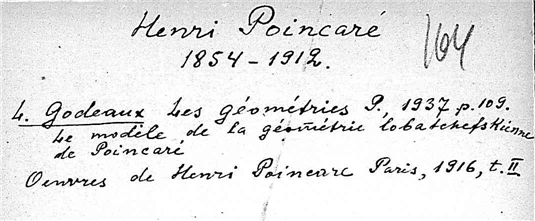 Henri Poincaré
164
1854 - 1912.
L. Godeaux Les géométries P., 1937 p. 109.
Le modèle de la géométrie lobatchefskienne
de Poincaré
Oeuvres de Henri Poincare Paris, 1916, t. II